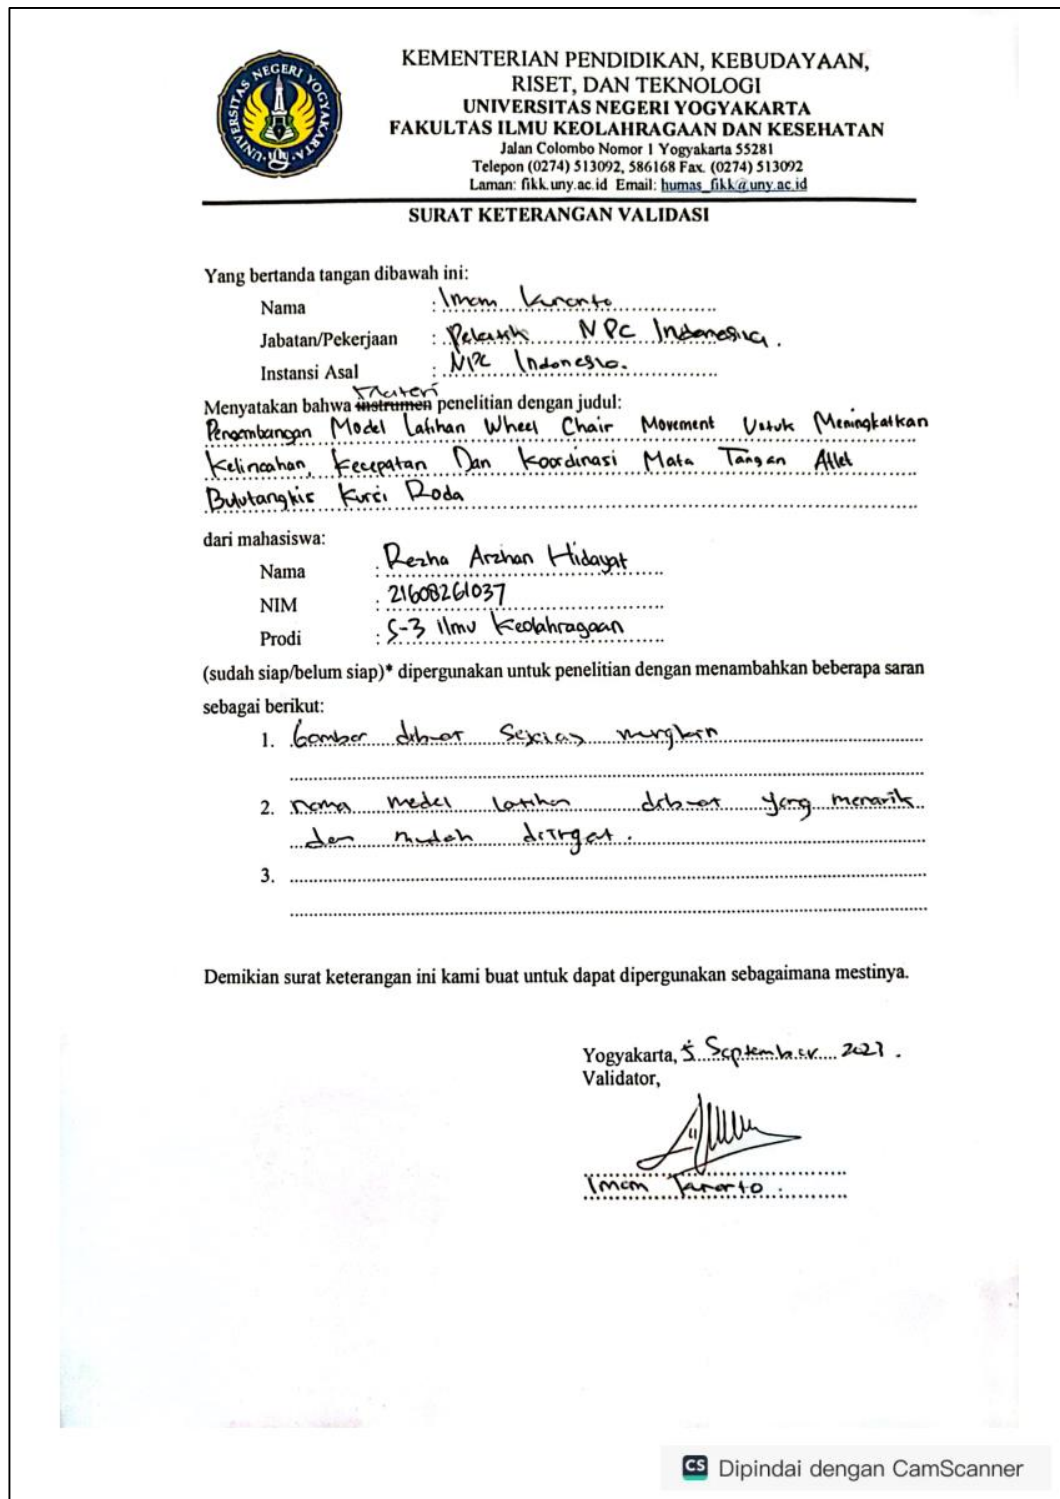 UNIVERSITAS NEGERI YOGYAKARTA
KEMENTERIAN PENDIDIKAN, KEBUDAYAAN,
RISET, DAN TEKNOLOGI
UNIVERSITAS NEGERI YOGYAKARTA
FAKULTAS ILMU KEOLAHRAGAAN DAN KESEHATAN
Jalan Colombo Nomor 1 Yogyakarta 55281
Telepon (0274) 513092, 586168 Fax. (0274) 513092
Laman: fikk.uny.ac.id Email: humas_fikk@uny.ac.id
SURAT KETERANGAN VALIDASI
Yang bertanda tangan dibawah ini:
Nama : Imam
Jabatan/Pekerjaan : Pelatih NPC Indonesia.
Instansi Asal : NPC Indonesia.
Materi
Menyatakan bahwa instrumen penelitian dengan judul:
Pengembangan Model Latihan Wheel Chair Movement Untuk Meningkatkan
Kelincahan, Kecepatan Dan Koordinasi Mata Tangan Atlet
Bulutangkis Kursi Roda
dari mahasiswa:
Nama : Rezha Arzhan Hidayat
NIM : 21608261037
Prodi : S-3 Ilmu Keolahragaan
(sudah siap/belum siap)* dipergunakan untuk penelitian dengan menambahkan beberapa saran
sebagai berikut:
1. Gambar dibuat sejelas mungkin
2. nama model latihan dibuat yang menarik
dan mudah diingat.
3.
Demikian surat keterangan ini kami buat untuk dapat dipergunakan sebagaimana mestinya.
Yogyakarta, 5 September 2023.
Validator,
Imam
CS Dipindai dengan CamScanner